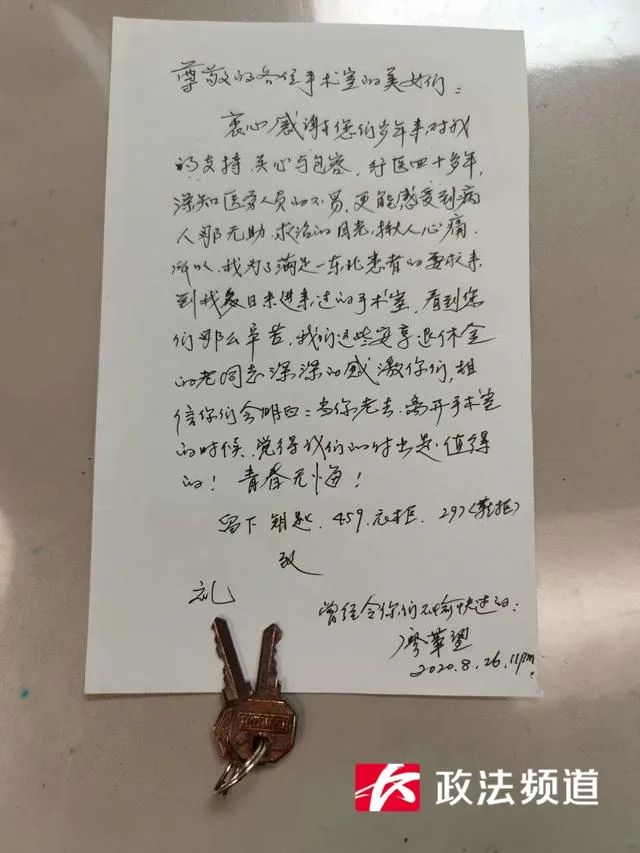 尊敬的各位手术室的美女们：
衷心感谢您们多年来对我
的支持、关心与包容，行医四十多年，
深知医务人员的不易，更能感受到病
人那无助、求治的目光，揪人心痛，
所以，我为了满足一东北患者的要求来
到我多日未进来过的手术室，看到您
们那么辛苦，我们这些安享退休金
的老同志深深的感激你们，相
信你们会明白：当你老去、离开手术室
的时候，觉得我们的付出是值得
的！青春无悔！
留下钥匙，459.衣柜，297(鞋柜)
致
礼
曾经令你们不愉快过的：
廖華望
2020.8.26.11pm
政法频道